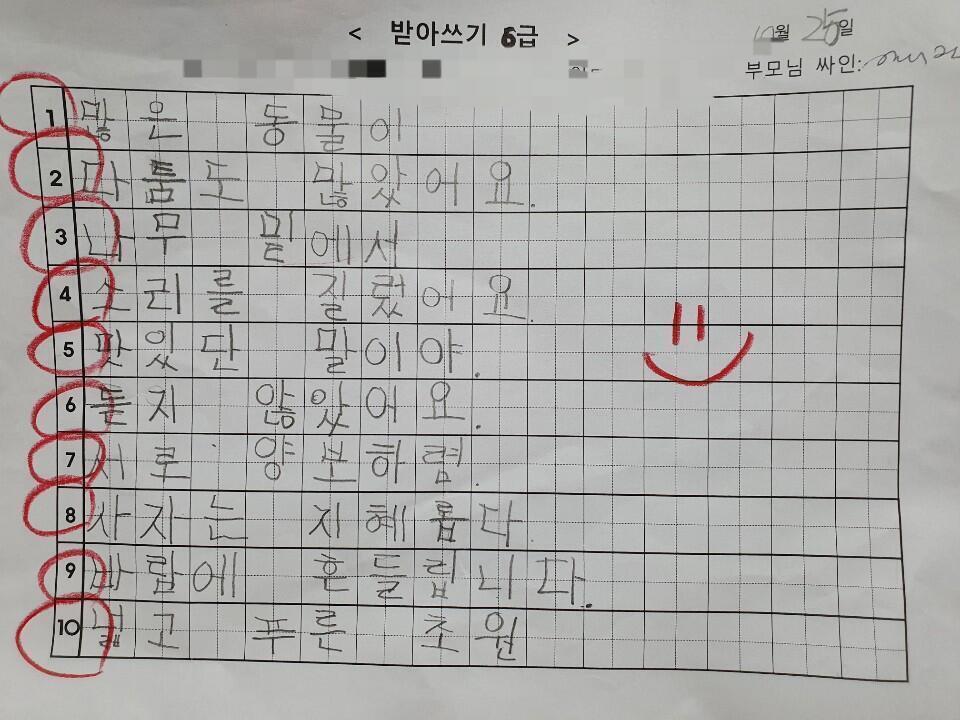 < 받아쓰기 6급 >
10월 25일
부모님 싸인:
1 많은 동물이
2 다툼도 많았어요.
3 나무 밑에서
4 소리를 질렀어요.
5 맛있단 말이야.
6 듣지 않았어요.
7 서로 양보하렴.
8 사자는 지혜롭다
9 바람에 흔들립니다.
10 넓고 푸른 초원